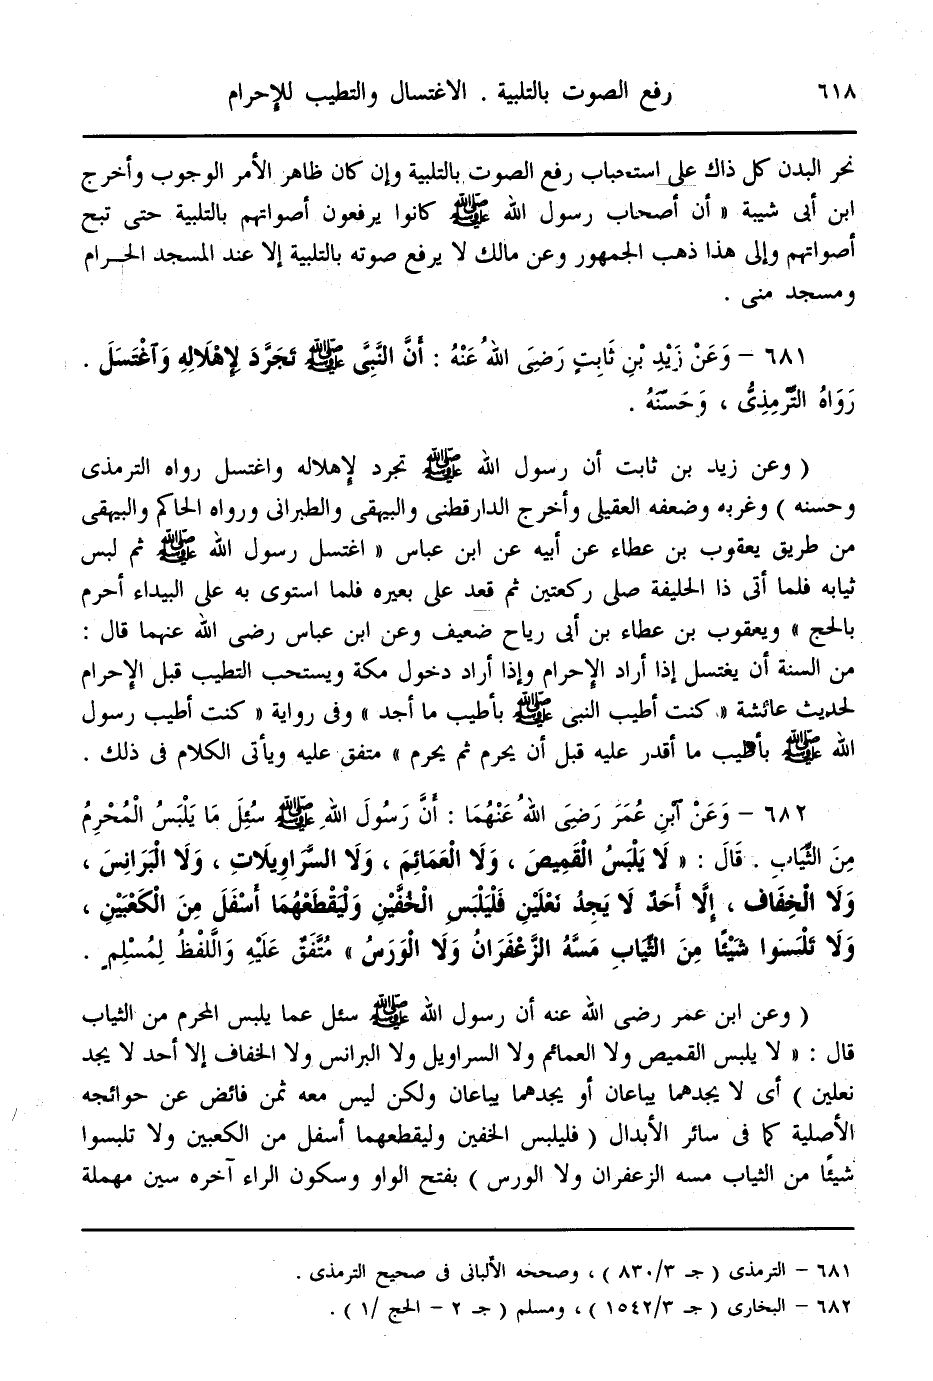 ٦١٨ رفع الصوت بالتلبية . الاغتسال والتطيب للإحرام
نحر البدن كل ذاك على استحباب رفع الصوت بالتلبية وإن كان ظاهر الأمر الوجوب وأخرج
ابن أبى شيبة « أن أصحاب رسول الله ﷺ كانوا يرفعون أصواتهم بالتلبية حتى تبح
أصواتهم وإلى هذا ذهب الجمهور وعن مالك لا يرفع صوته بالتلبية إلا عند المسجد الحرام
ومسجد منى .
٦٨١ – وَعَنْ زَيْدِ بْنِ ثَابِتٍ رَضِىَ اللهُ عَنْهُ : أَنَّ النَّبِىَّ ﷺ تَجَرَّدَ لِإِهْلَالِهِ وَآغْتَسَلَ .
رَوَاهُ التِّرْمِذِىُّ ، وَحَسَّنَهُ .
( وعن زيد بن ثابت أن رسول الله ﷺ تجرد لإهلاله واغتسل رواه الترمذى
وحسنه ) وغربه وضعفه العقيلى وأخرج الدارقطنى والبيهقى والطبرانى ورواه الحاكم والبيهقى
من طريق يعقوب بن عطاء عن أبيه عن ابن عباس « اغتسل رسول الله ﷺ ثم لبس
ثيابه فلما أتى ذا الحليفة صلى ركعتين ثم قعد على بعيره فلما استوى به على البيداء أحرم
بالحج » ويعقوب بن عطاء بن أبى رباح ضعيف وعن ابن عباس رضى الله عنهما قال :
من السنة أن يغتسل إذا أراد الإحرام وإذا أراد دخول مكة ويستحب التطيب قبل الإحرام
لحديث عائشة « كنت أطيب النبى ﷺ بأطيب ما أجد » وفى رواية « كنت أطيب رسول
الله ﷺ بأطيب ما أقدر عليه قبل أن يحرم ثم يحرم » متفق عليه ويأتى الكلام فى ذلك .
٦٨٢ – وَعَنْ آبْنِ عُمَرَ رَضِىَ اللهُ عَنْهُمَا : أَنَّ رَسُولَ اللهِ ﷺ سُئِلَ مَا يَلْبَسُ الْمُحْرِمُ
مِنَ الثِّيَابِ . قَالَ : « لَا يَلْبَسُ الْقَمِيصَ ، وَلَا الْعَمَائِمَ ، وَلَا السَّرَاوِيلَاتِ ، وَلَا الْبَرَانِسَ ،
وَلَا الْخِفَافَ ، إِلَّا أَحَدٌ لَا يَجِدُ نَعْلَيْنِ فَلْيَلْبَسِ الْخُفَّيْنِ وَلْيَقْطَعْهُمَا أَسْفَلَ مِنَ الْكَعْبَيْنِ ،
وَلَا تَلْبَسُوا شَيْئًا مِنَ الثِّيَابِ مَسَّهُ الزَّعْفَرَانُ وَلَا الْوَرَسُ » مُتَّفَقٌ عَلَيْهِ وَالَّلفْظُ لِمُسْلِمٍ .
( وعن ابن عمر رضى الله عنه أن رسول الله ﷺ سئل عما يلبس المحرم من الثياب
قال : « لا يلبس القميص ولا العمائم ولا السراويل ولا البرانس ولا الخفاف إلا أحد لا يجد
نعلين ) أى لا يجدهما يباعان أو يجدهما يباعان ولكن ليس معه ثمن فائض عن حوائجه
الأصلية كما فى سائر الأبدال ( فليلبس الخفين وليقطعهما أسفل من الكعبين ولا تلبسوا
شيئًا من الثياب مسه الزعفران ولا الورس ) بفتح الواو وسكون الراء آخره سين مهملة
٦٨١ – الترمذى ( جـ ٨٣٠/٣ ) ، وصححه الألبانى فى صحيح الترمذى .
٦٨٢ – البخارى ( جـ ١٥٤٢/٣ ) ، ومسلم ( جـ ٢ – الحج /١ ) .